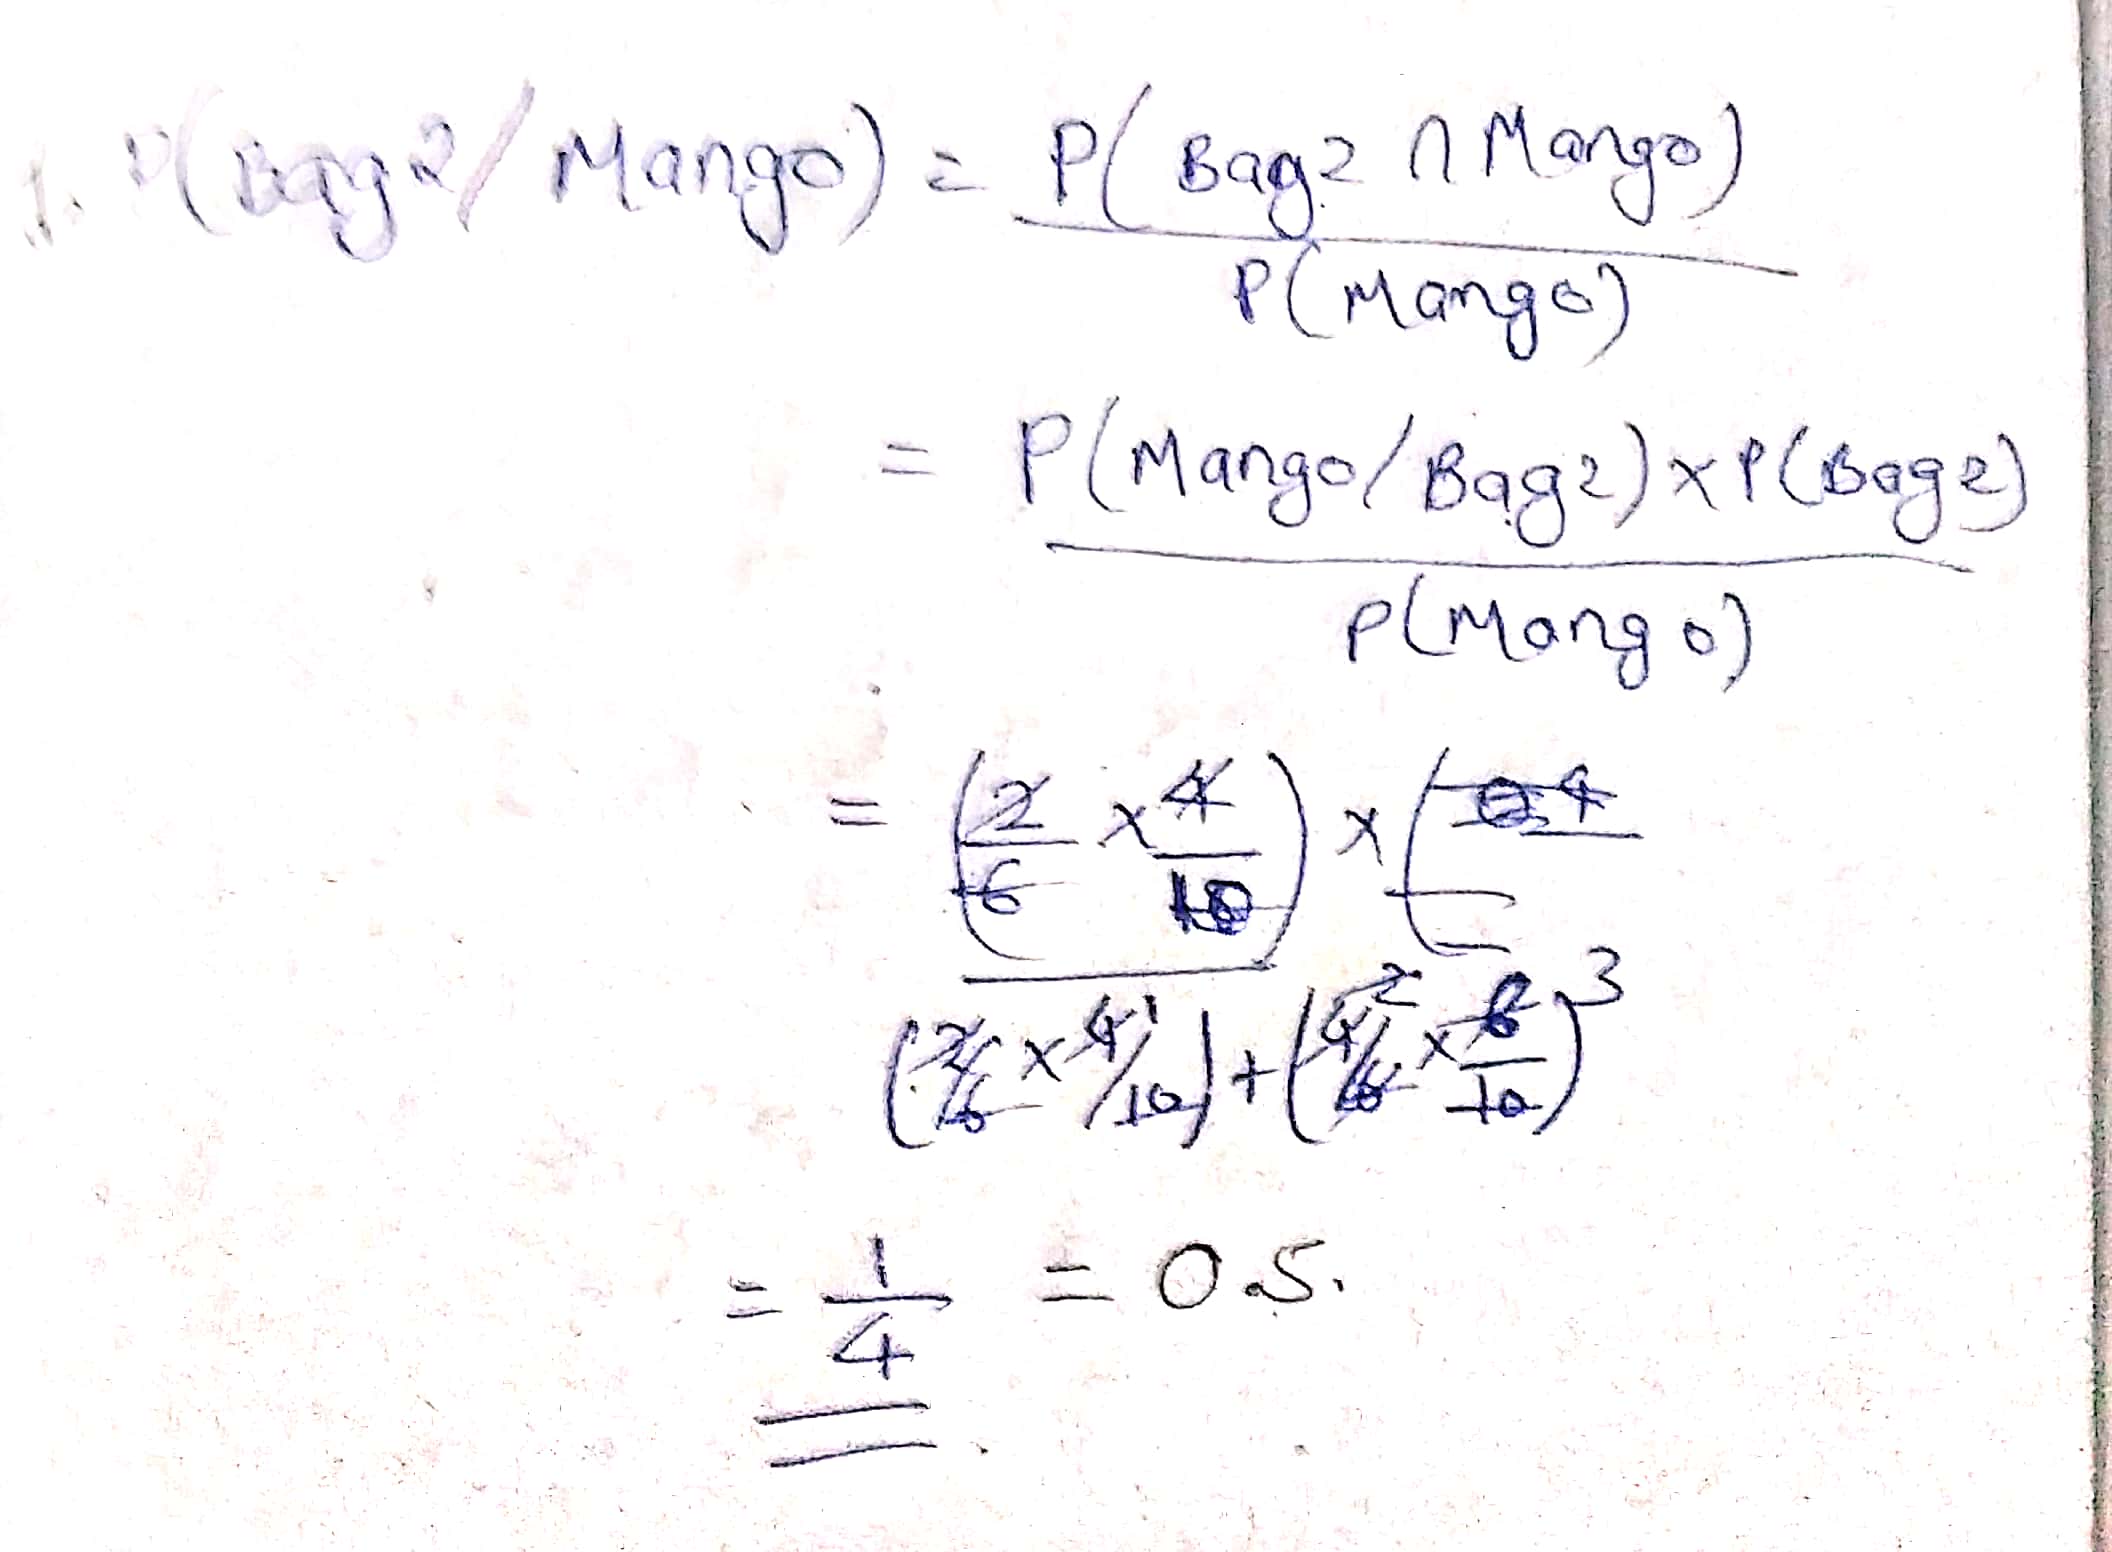 1. P(Bag2/Mango) = P(Bag2 ∩ Mango)
P(Mango)
= P(Mango/Bag2) x P(Bag2)
P(Mango)
= (2/6 x 4/10) x (
(2/6 x 4/10) + (4/6 x 6/10)
= 1/4 = 0.5.